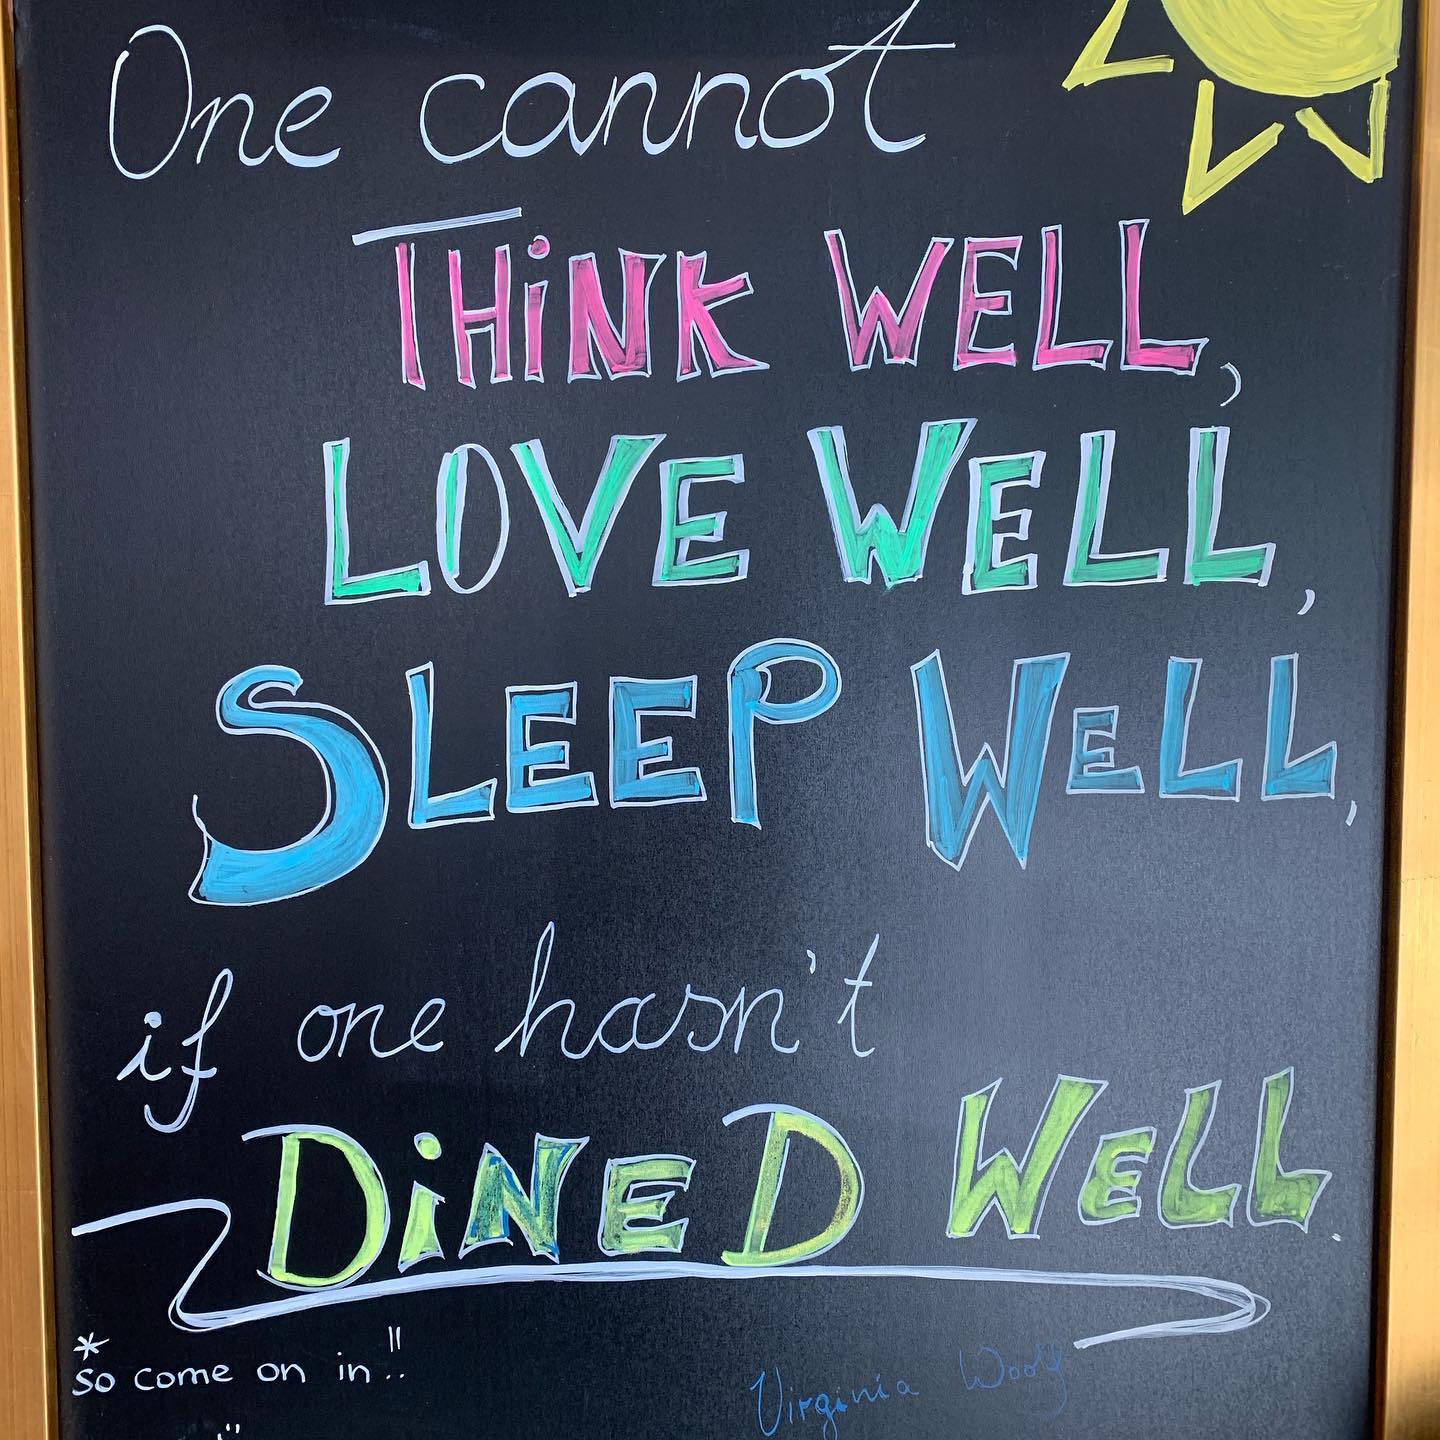 One cannot
THiNK WELL,
LOVE WELL,
SLEEP WELL,
if one hasn't
DiNED WELL.
*
so come on in!!
Virginia Woolf